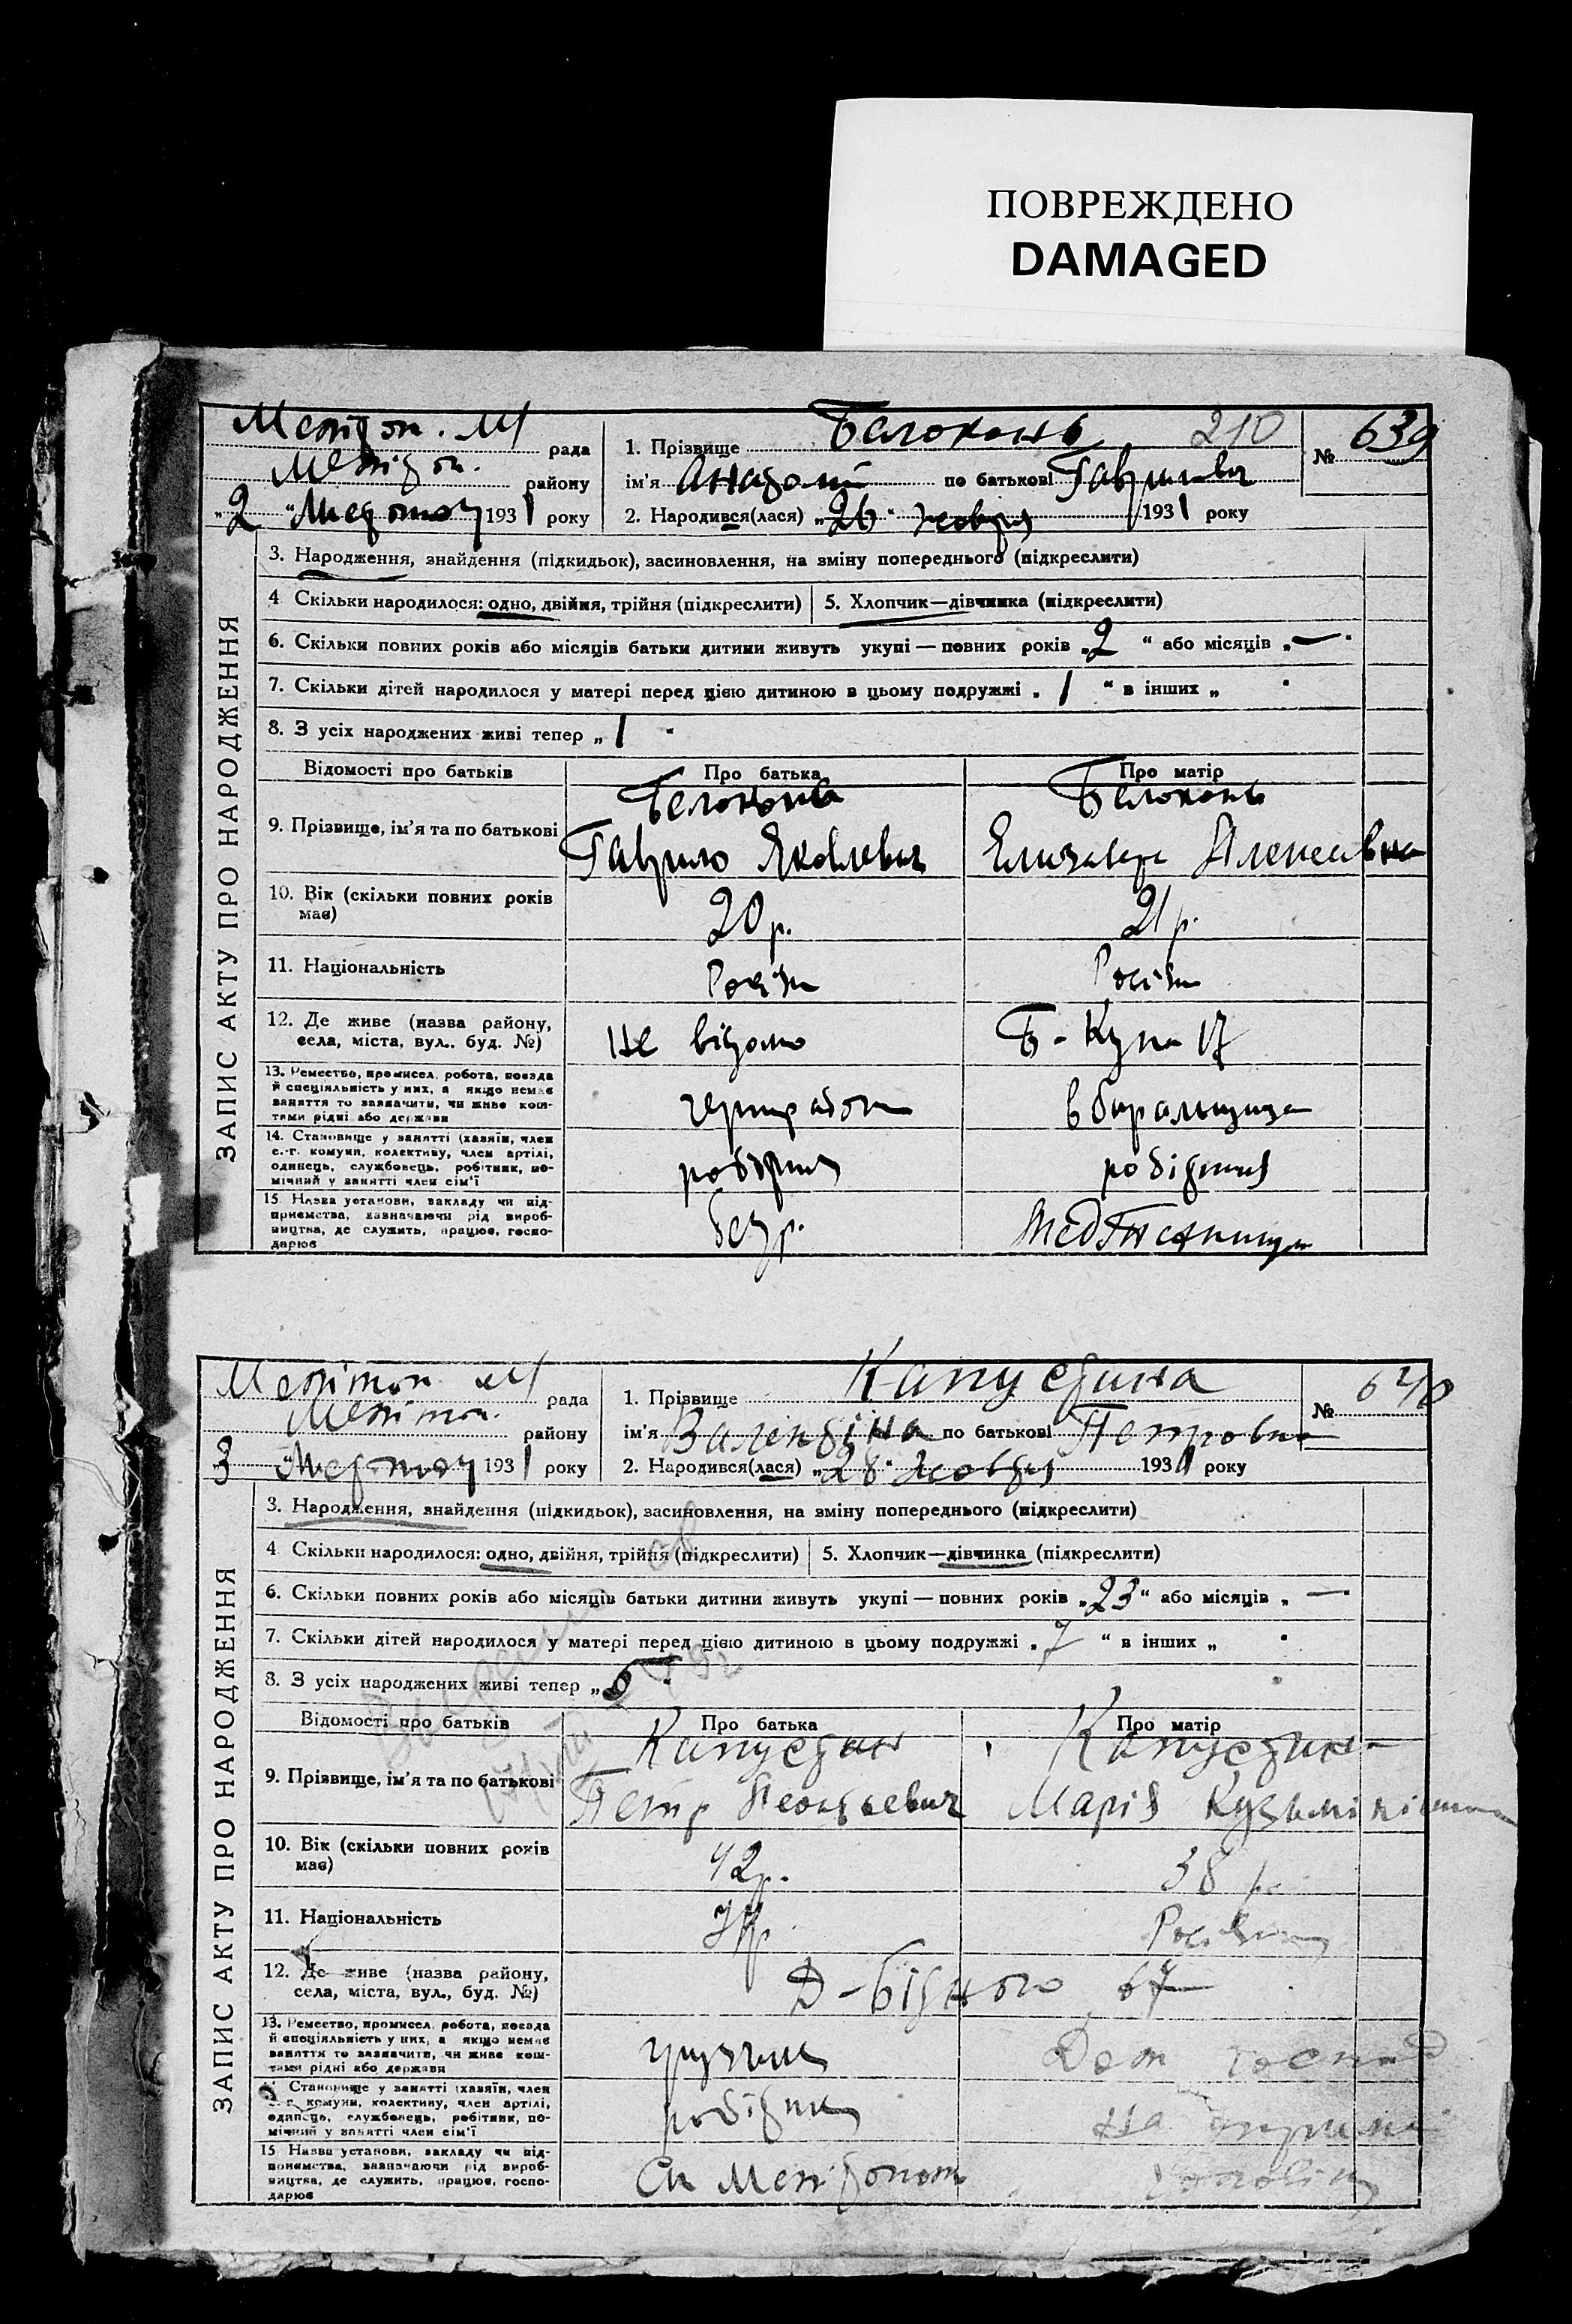 ПОВРЕЖДЕНО
DAMAGED
Меліт оп. М/ рада
Меліт оп. району
„2 “ Листопад 1931 року
1. Прізвище Белоконь 210
№ 639
ім'я Анатолій по батькові Гаврилович
2. Народився(лася) „26“ жовтня 1931 року
ЗАПИС АКТУ ПРО НАРОДЖЕННЯ
3. Народження, знайдення (підкидьок), засиновлення, на зміну попереднього (підкреслити)
4 Скільки народилося: одно, двійня, трійня (підкреслити) 5. Хлопчик—дівчинка (підкреслити)
6. Скільки повних років або місяців батьки дитини живуть укупі — повних років „2 “ або місяців „—“
7. Скільки дітей народилося у матері перед цією дитиною в цьому подружжі „ 1 “ в інших „ “
8. З усіх народжених живі тепер „ 1 “
Відомості про батьків Про батька Про матір
9. Прізвище, ім'я та по батькові
Белоконь Белоконь
Гаврило Яковлевич Елизавета Алексеевна
10. Вік (скільки повних років має) 20 р. 21 р.
11. Національність Росіян Росіян
12. Де живе (назва району, села, міста, вул.. буд. №) не відомо 17
13. Ремество, промисел, робота, посада й спеціяльність у них, а якщо немає заняття то зазначити, чи живе коштами рідні або держави чорнораб вбиральщиця
14. Становище у занятті (хазяїн, член с.-г. комуни, колективу, член артілі, одинець, службовець, робітник, помічний у занятті член сім'ї робітник робітниця
15. Назва установи, закладу чи підприємства, зазначаючи рід виробництва, де служить, працює, господарює без р. МедТехникум
Меліт оп. М/ рада
Меліт оп. району
3 “ Листопад 1931 року
1. Прізвище Капустина
№ 640
ім'я Валентіна по батькові Петровна
2. Народився(лася) „28“ жовтня 1931 року
ЗАПИС АКТУ ПРО НАРОДЖЕННЯ
3. Народження, знайдення (підкидьок), засиновлення, на зміну попереднього (підкреслити)
4 Скільки народилося: одно, двійня, трійня (підкреслити) 5. Хлопчик—дівчинка (підкреслити)
6. Скільки повних років або місяців батьки дитини живуть укупі — повних років „23“ або місяців „ —
7. Скільки дітей народилося у матері перед цією дитиною в цьому подружжі „ 7 “ в інших „ “
8. З усіх народжених живі тепер „
Відомості про батьків Про батька Про матір
9. Прізвище, ім'я та по батькові
Капустин Капустина
Петр Леонтьевич Марія Кузьмінішна
10. Вік (скільки повних років має) 42 р. 38 р.
11. Національність Укр. Росіян
12. Де живе (назва району, села, міста, вул., буд. №) Д-Бідного 67
13. Ремество, промисел, робота, посада й спеціяльність у них, а якщо немає заняття то зазначити, чи живе коштами рідні або держави грузчик Дом господ
14. Становище у занятті (хазяїн, член с.-г. комуни, колективу, член артілі, одинець, службовець, робітник, помічний у занятті член сім'ї робітник на
15 Назва установи, закладу чи підприємства, зазначаючи рід виробництва, де служить, працює, господарює Ст Мелітополь чоловіка